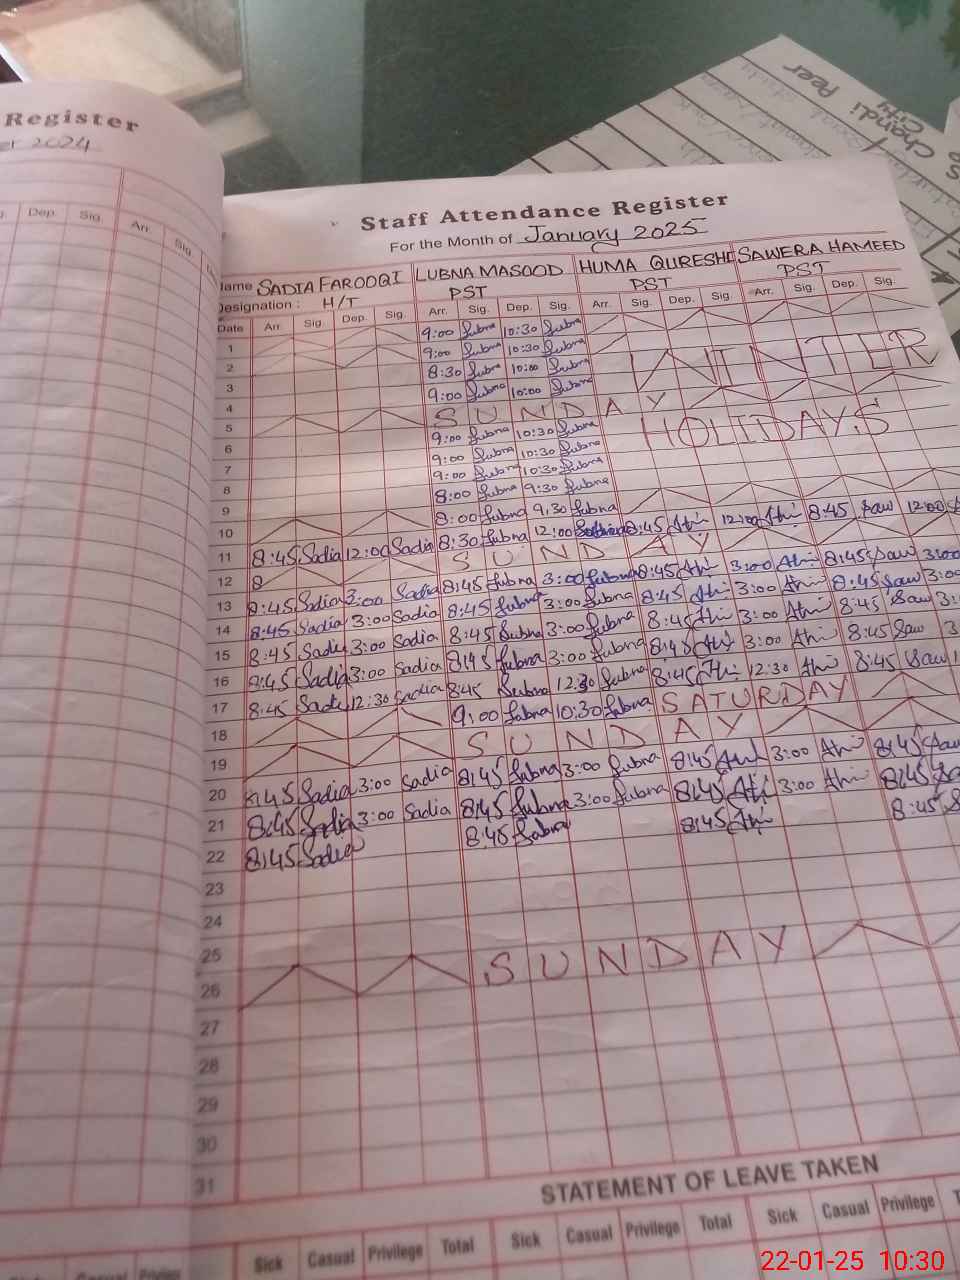 Register
er 2024
Dep. Sig. Arr. Sig.
Chandi Peer
City
Staff Attendance Register
For the Month of January 2025
Name SADIA FAROOQI LUBNA MASOOD HUMA QURESHI SAWERA HAMEED
Designation : H/T PST PST PST
Date Arr. Sig. Dep. Sig. Arr. Sig. Dep. Sig. Arr. Sig. Dep. Sig. Arr. Sig. Dep. Sig.
1 9:00 Lubna 10:30 Lubna
2 9:00 Lubna 10:30 Lubna WINTER
3 8:30 Lubna 10:00 Lubna
4 9:00 Lubna 10:00 Lubna
5 SUNDAY
6 9:00 Lubna 10:30 Lubna HOLIDAYS
7 9:00 Lubna 10:30 Lubna
8 9:00 Lubna 10:30 Lubna
9 8:00 Lubna 9:30 Lubna
10 8:00 Lubna 9:30 Lubna
11 8:45 Sadia 12:00 Sadia 8:30 Lubna 12:00 8:45 12:00 8:45 Saw 12:00
12 8 SUNDAY
13 8:45 Sadia 3:00 Sadia 8:45 Lubna 3:00 Lubna 8:45 3:00 8:45 Saw 3:00
14 8:45 Sadia 3:00 Sadia 8:45 Lubna 3:00 Lubna 8:45 3:00 8:45 Saw 3:00
15 8:45 Sadia 3:00 Sadia 8:45 Lubna 3:00 Lubna 8:45 3:00 8:45 Saw 3:
16 8:45 Sadia 3:00 Sadia 8:45 Lubna 3:00 Lubna 8:45 3:00 8:45 Saw 3
17 8:45 Sadia 12:30 Sadia 8:45 Lubna 12:30 Lubna 8:45 12:30 8:45 Saw 1
18 9:00 Lubna 10:30 Lubna SATURDAY
19 SUNDAY
20 8:45 Sadia 3:00 Sadia 8:45 Lubna 3:00 Lubna 8:45 3:00 8:45 Saw
21 8:45 Sadia 3:00 Sadia 8:45 Lubna 3:00 Lubna 8:45 3:00 8:45 Sa
22 8:45 Sadia 8:45 Lubna 8:45 8:45 S
23
24
25
26 SUNDAY
27
28
29
30
31
STATEMENT OF LEAVE TAKEN
Casual Sick Casual Privilege Total Sick Casual Privilege Total Sick Casual Privilege
22-01-25 10:30